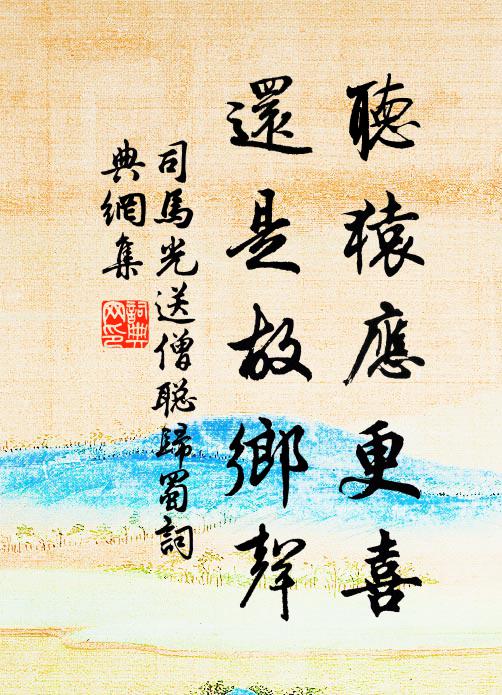 聽猿應更喜
還是故鄉聲
司馬光送僧聰歸蜀詞
典網集
詞典
网印